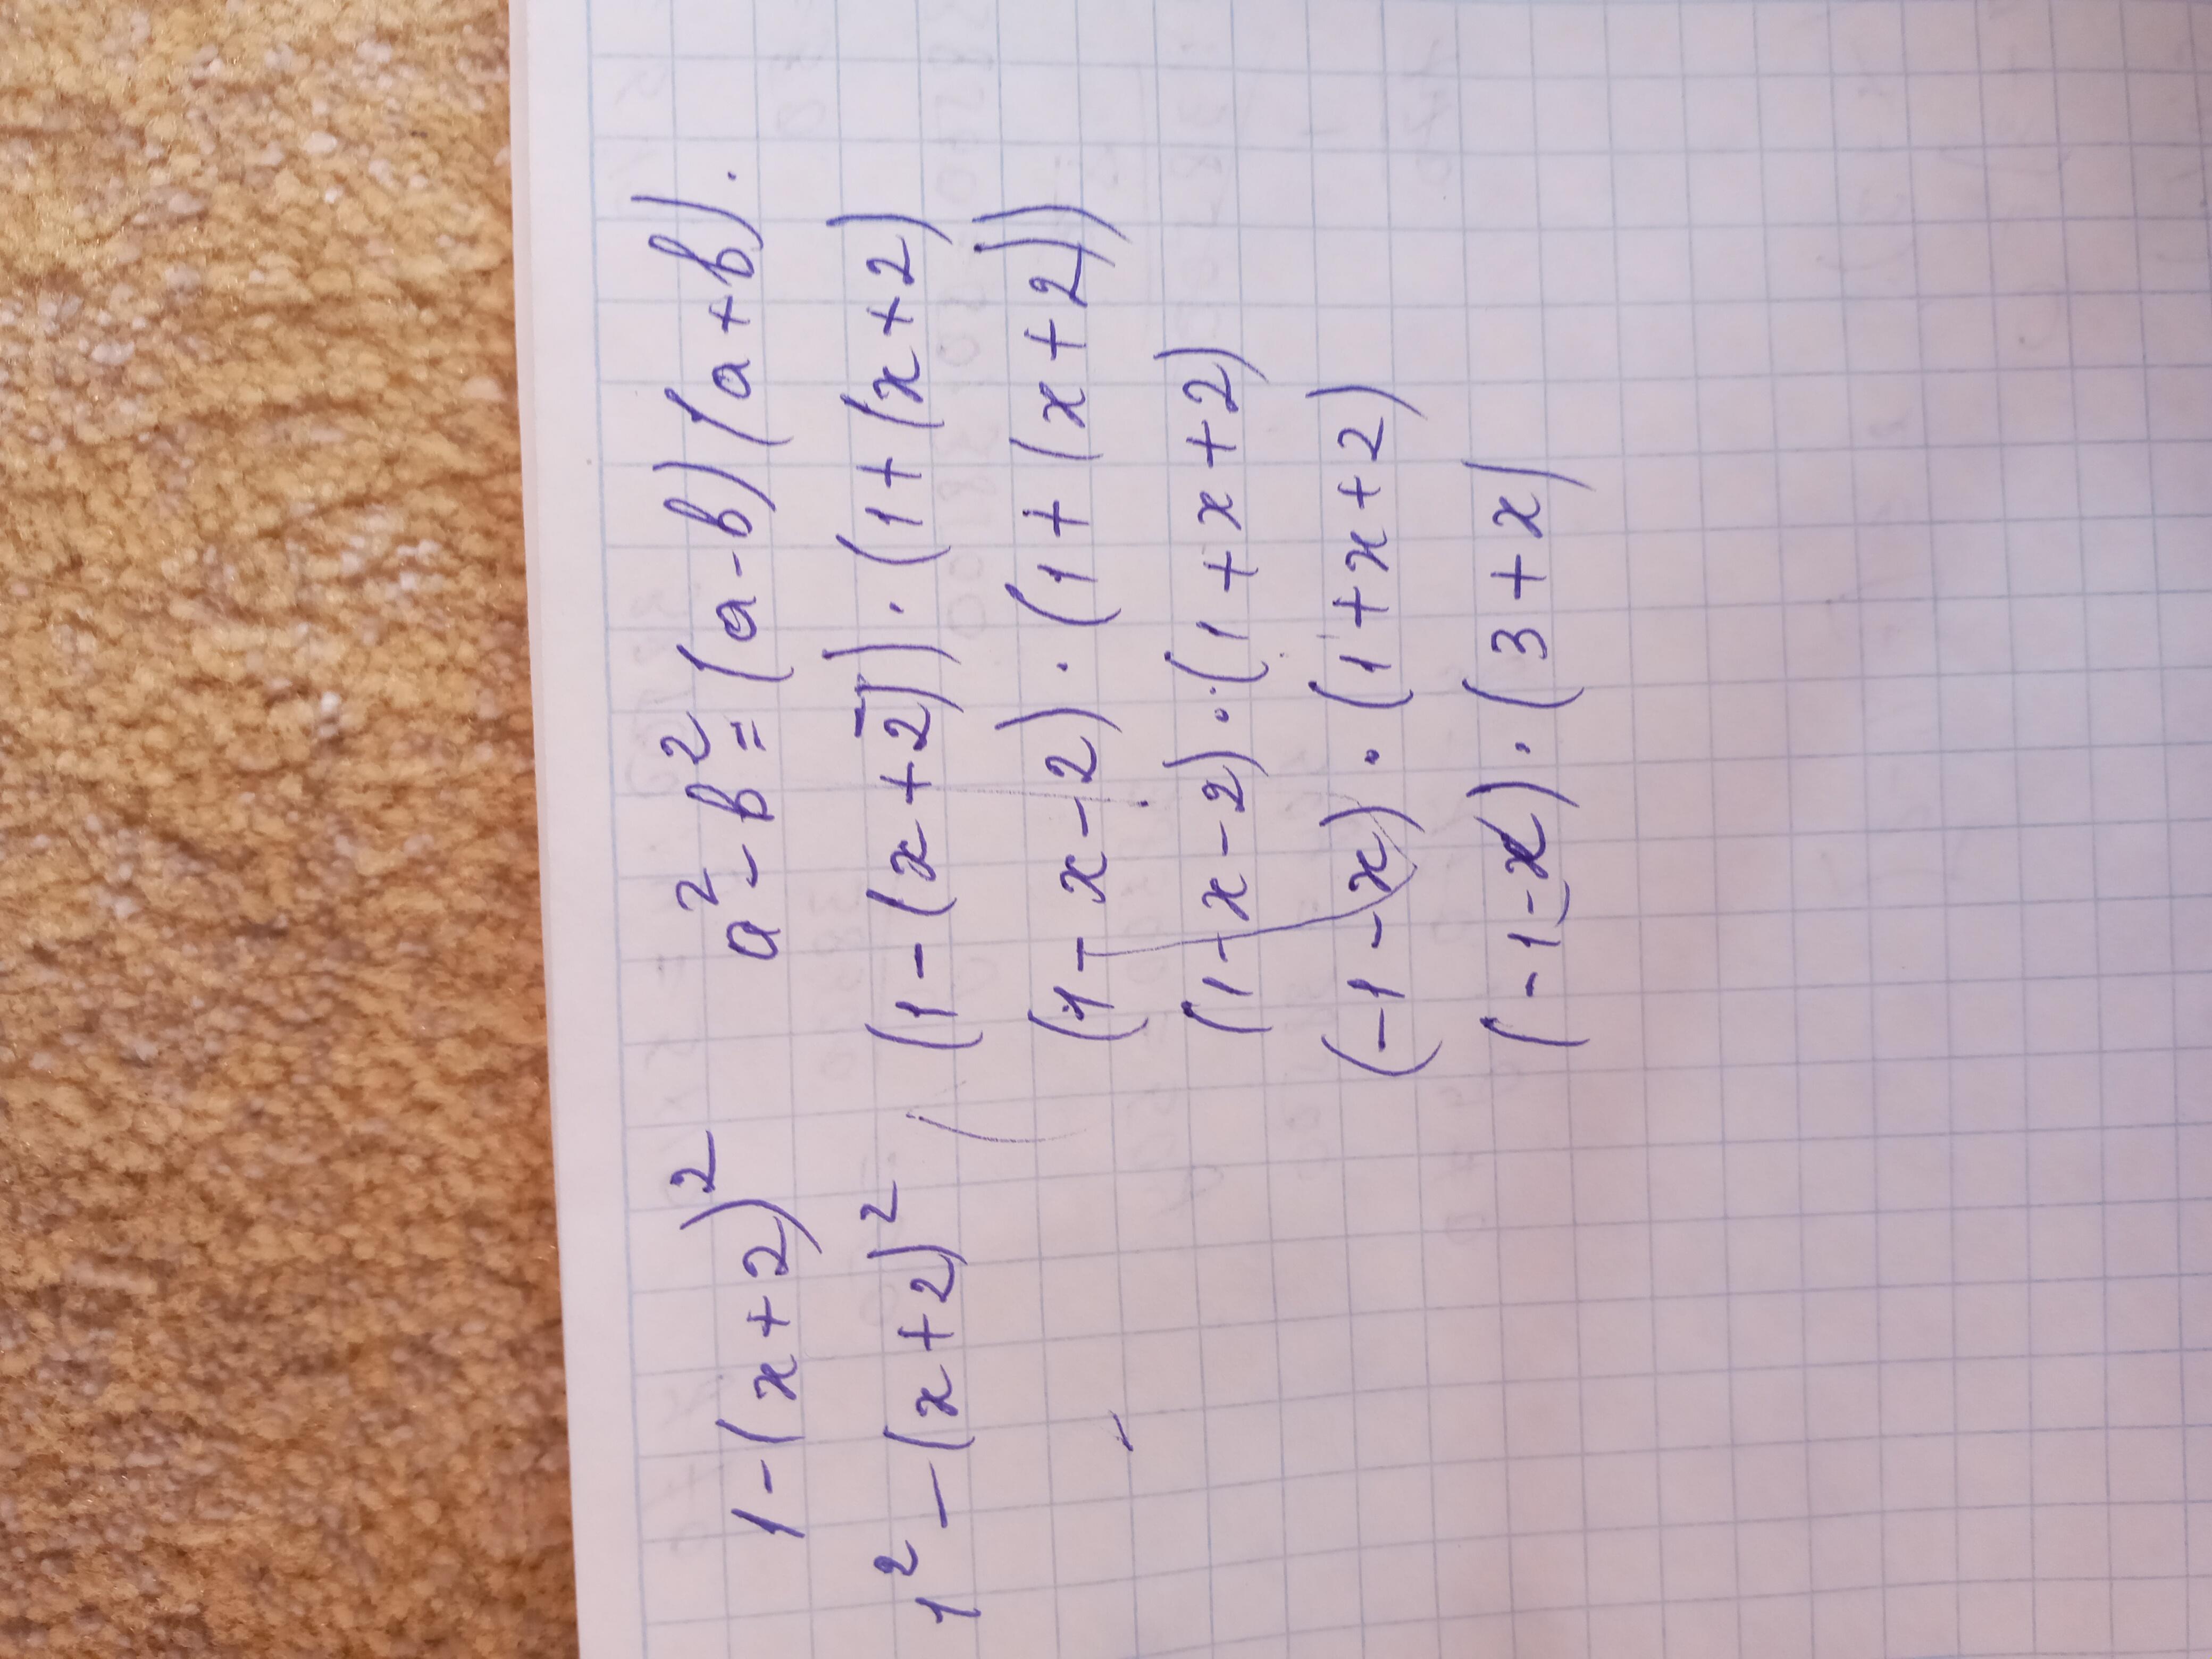 1-(x+2)² a²-b²=(a-b)(a+b).
1²-(x+2)² (1-(x+2))·(1+(x+2)
(1-x-2)·(1+(x+2))
(1-x-2)·(1+x+2)
(-1-x)·(1+x+2)
(-1-x)·(3+x)